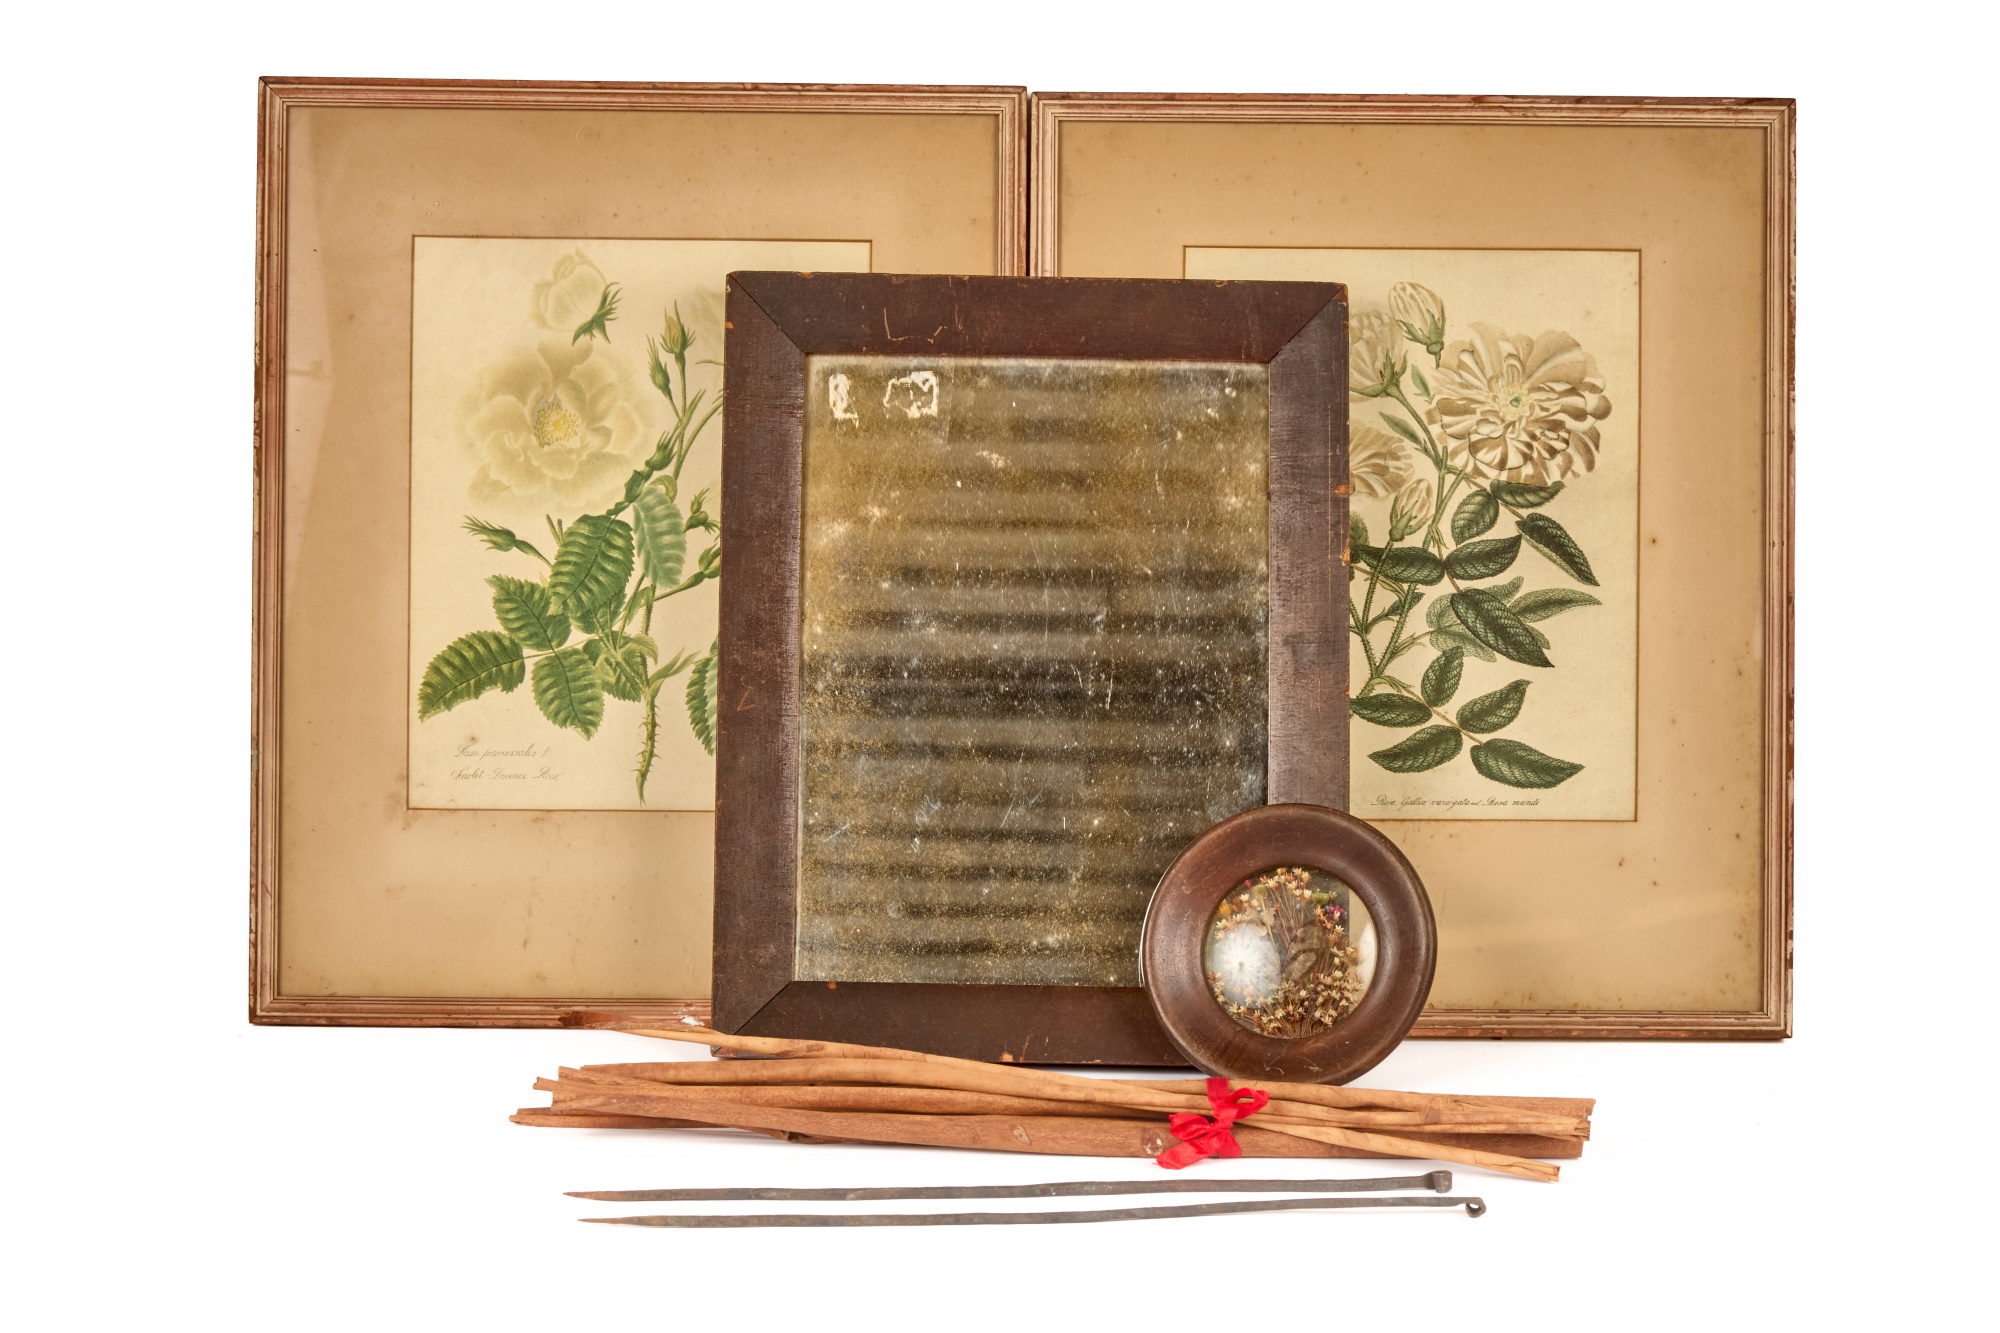 Rosa provincialis B.
Scarlet Provence Rose
Rosa Gallica variegata and Rosa mundi